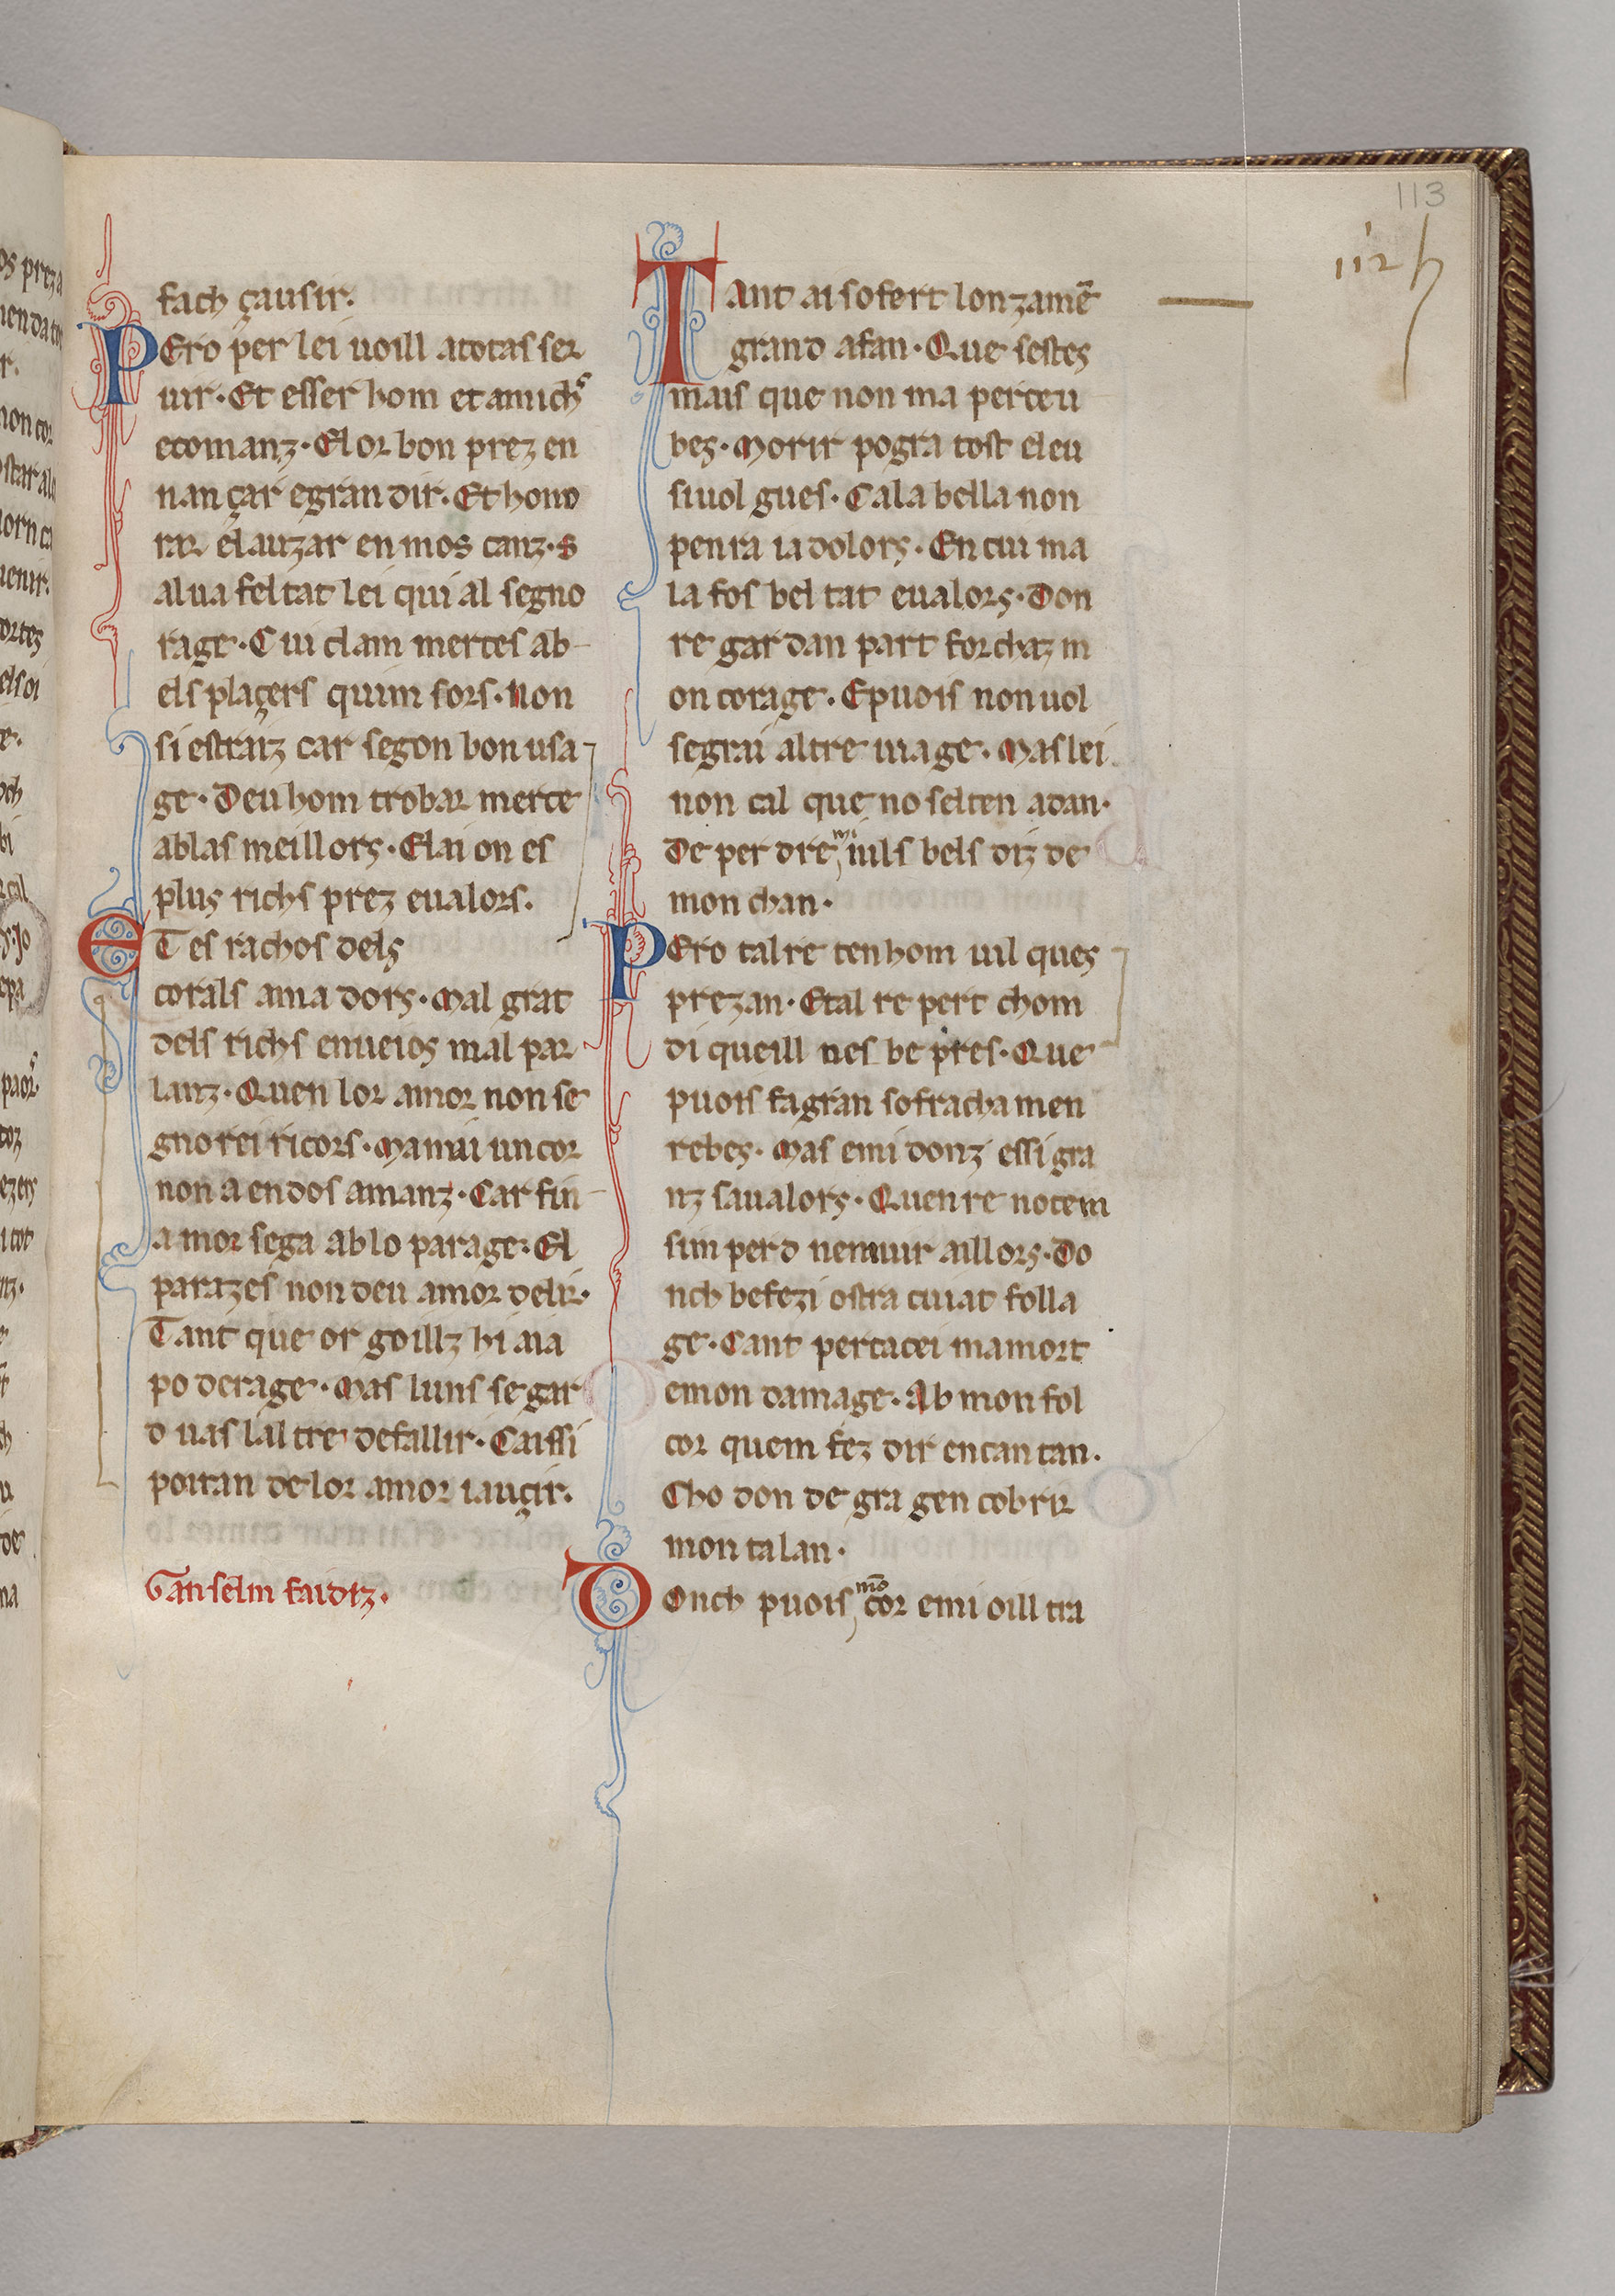 113
112
fach çausir.
PEro per lei uoill atotas ser
uir. Et esser hom et amichs
ecomanz. El or bon prez en
nan çar egran dir. Et hono
rar elauzar en mos canz. S
alua feltat lei qui al segno
rage. Cui clam merces ab-
els plaçers quim sors. Non
si estraiz car segon bon usa
ge. Deu hom trobar merce
ablas meillors. Elai on es
plus richs prez eualors.
ET es rachos dels
corals ama dors. Mal grat
dels richs enueios mal par
lanz. Quen lor amor non se
gnorei ricors. Mamui un cor
non a en dos amanz. Car fin-
a mor sega ab lo parage. El
parazes non deu amor delir.
Tant que or goillz hi aia
po derage. Mas luns se gar
d uas laltre defallir. Caissi
poiran de lor amor iauçir.
Ganselm faidiz.
TAnt ai sofert lonzamē
grand afan. Que sestes
mais que non ma perceu
bes. Morir pogra tost eleu
siuol gues. Cala bella non
penra ia dolors. En cui ma
la fos bel tat eualors. Don
re gar dan part for chaz m
on corage. Epuois non uol
segrai altre uiage. Mas lei
non cal que no selten adan.
De per dre mi iuls bels diz de
mon chan.
PEro talre ten hom uil ques
prezan. Etal re pert chom
di queill nes be pres. Que
puois fagran sofracha men
rebes. Mas emi donz essi gra
nz saualors. Quen re notem
sim perd nemuir aillors. Do
nch befezi ostra cuiat folla
ge. Cant percacei mamort
emon damage. Ab mon fol
cor quem fez dir encan tan.
Cho don de gra gen cobrir
mon talan.
DOnch puois mō cor emi oill tra